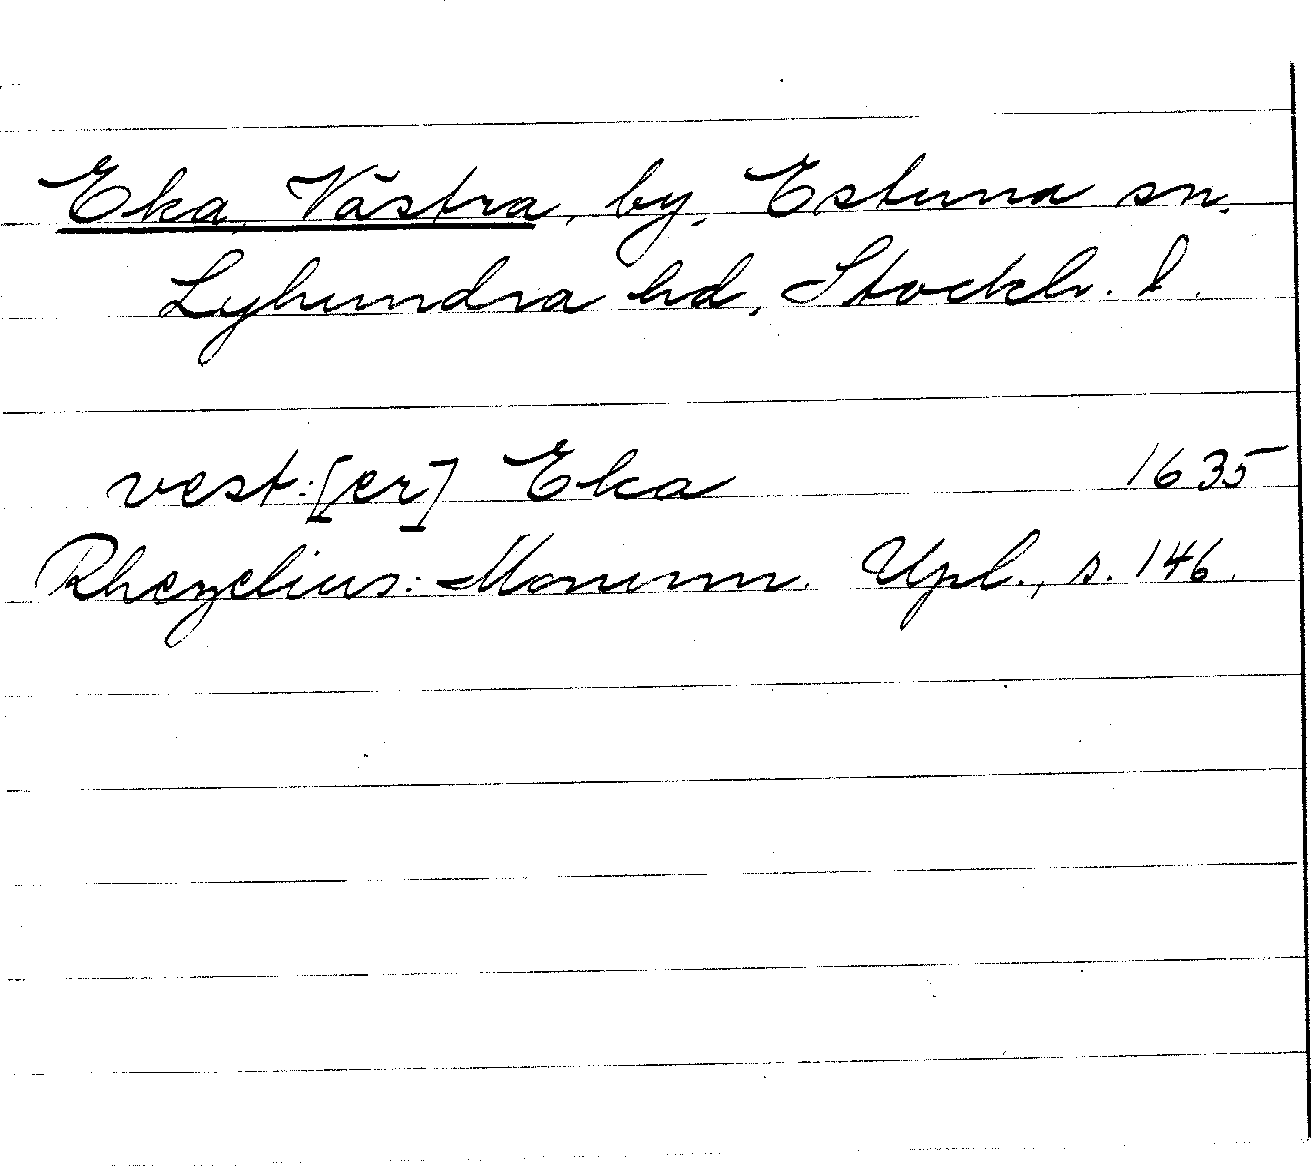 Eka, Västra, by, Estuna sn.
Lyhundra hd, Stockh. l.
vest:[er] Eka 1635
Rhezelius: Monum. Upl., s. 146.